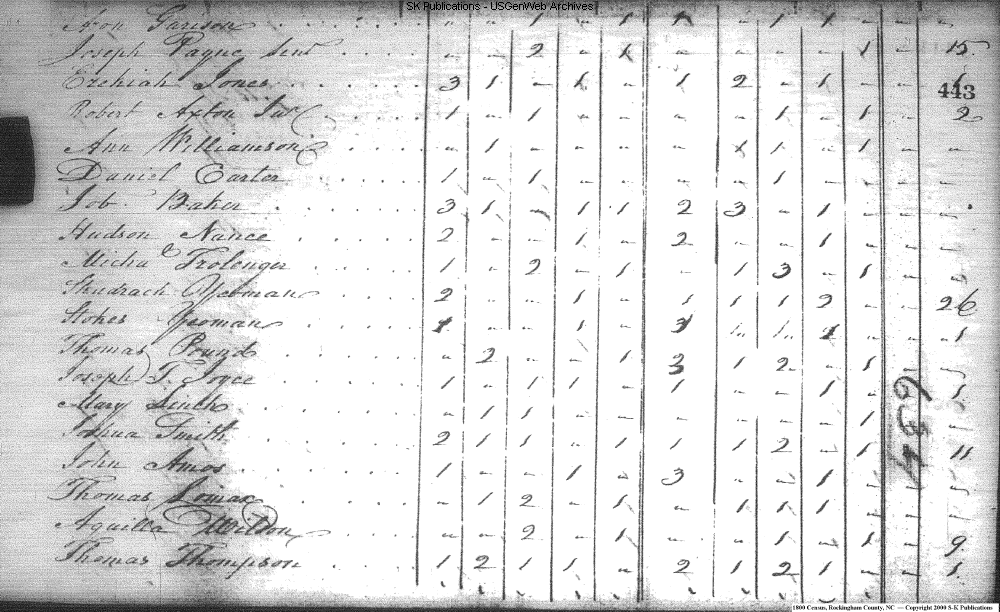 SK Publications - USGenWeb Archives
Garison " " 1 " 1 1 " 1 1 " "
Joseph Payne Senr " " 2 " 1 " " " " 1 " 15
Ezekiah Jones 3 1 " 1 " 1 2 " 1 " "
443
Robert Axton 1 " 1 " " " " 1 " 1 " 2
Ann Williamson " 1 " " " " 1 1 " 1 " "
Daniel Carter 1 " 1 " " " " 1 " " " "
Job Baker 3 1 " 1 1 2 3 " 1 " "
Hudson Nance 2 " " 1 " 2 " " 1 " " "
Micha Trolenger 1 " 2 " 1 " 1 3 " 1 " "
Shadrach Yeoman 2 " " 1 " 1 1 1 2 " " 26
Stokes Yeoman " " 1 " " " 1
Thomas Pound " 2 " " 1 3 1 2 " 1
Joseph T. Joyce 1 " 1 1 " 1 " " 1 " 1
Mary Linch " 1 1 " " " " " " 1
Joshua Smith 2 1 1 " 1 1 1 2 " 1 11
John Amos 1 " " 1 " 3 " " 1 "
Thomas Lomax " 1 2 " 1 " 1 1 1 "
Aquilla Wilson " " 2 " 1 " " 1 " 1 " 9
Thomas Thompson 1 2 1 1 " 2 1 2 1 " " 1
1800 Census, Rockingham County, NC — Copyright 2000 S-K Publications